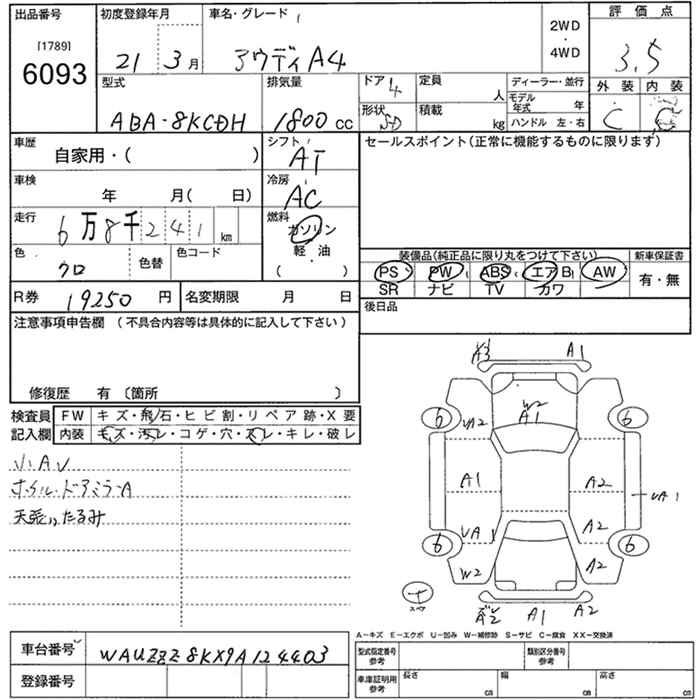 出品番号
[1789]
6093
初度登録年月
21 3月
車名・グレード
アウディA4
2WD
・
4WD
評価点
3.5
外装 内装
C C
型式
ABA-8KCDH
排気量
1800 cc
ドア
4
形状
SD
定員
人
積載
kg
ディーラー・並行
モデル年式 年
ハンドル 左・右
車歴
自家用・( )
シフト
AT
セールスポイント(正常に機能するものに限ります)
車検
年 月( 日)
冷房
AC
走行
6万8千241km
燃料
ガソリン
軽・油
( )
色
クロ
色替
色コード
装備品(純正品に限り丸をつけて下さい)
PS PW ABS エアB AW
SR ナビ TV カワ
新車保証書
有・無
R券 19250 円
名変期限 月 日
後日品
注意事項申告欄 (不具合内容等は具体的に記入して下さい)
修復歴 有〔箇所 〕
検査員記入欄
FW キズ・飛石・ヒビ割・リペア跡・X要
内装 キズ・汚レ・コゲ・穴・スレ・キレ・破レ
小AU
ホイル・ドアミラーA
天張りたるみ
A3 A1
W2
A1
6 6
UA2
A1 A2
UA1
UA1 A2
6 6
W2 A2
スペア
A2 A1 A2
A−キズ E−エクボ U−凹み W−補修跡 S−サビ C−腐食 XX−交換済
車台番号
WAUZZZ8KX9A124403
登録番号
型式指定番号
参考
類別区分番号
参考
車庫証明用
参考
長さ cm
幅 cm
高さ cm